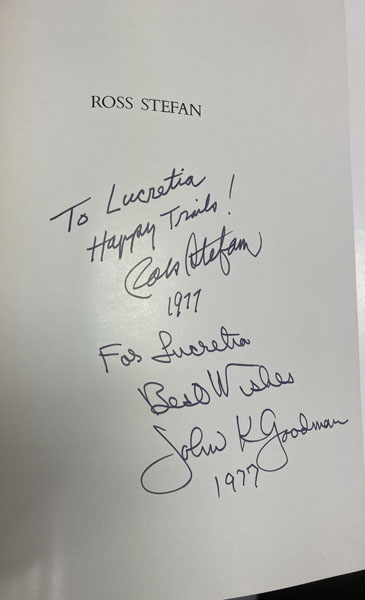 ROSS STEFAN
To Lucretia
Happy Trails!
Ross Stefan
1977
For Lucretia
Best Wishes
John K Goodman
1977